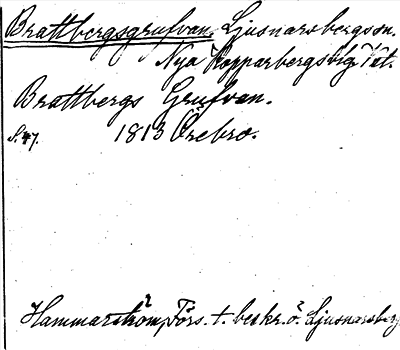 Brattbergsgrufvan. Ljusnarsbergssn.
Nya Kopparbergsblg. Vät.
Brattbergs Grufvan.
S. 47. 1813 Örebro.
Hammarström, Förs. t. beskr. ö. Ljusnarsberg